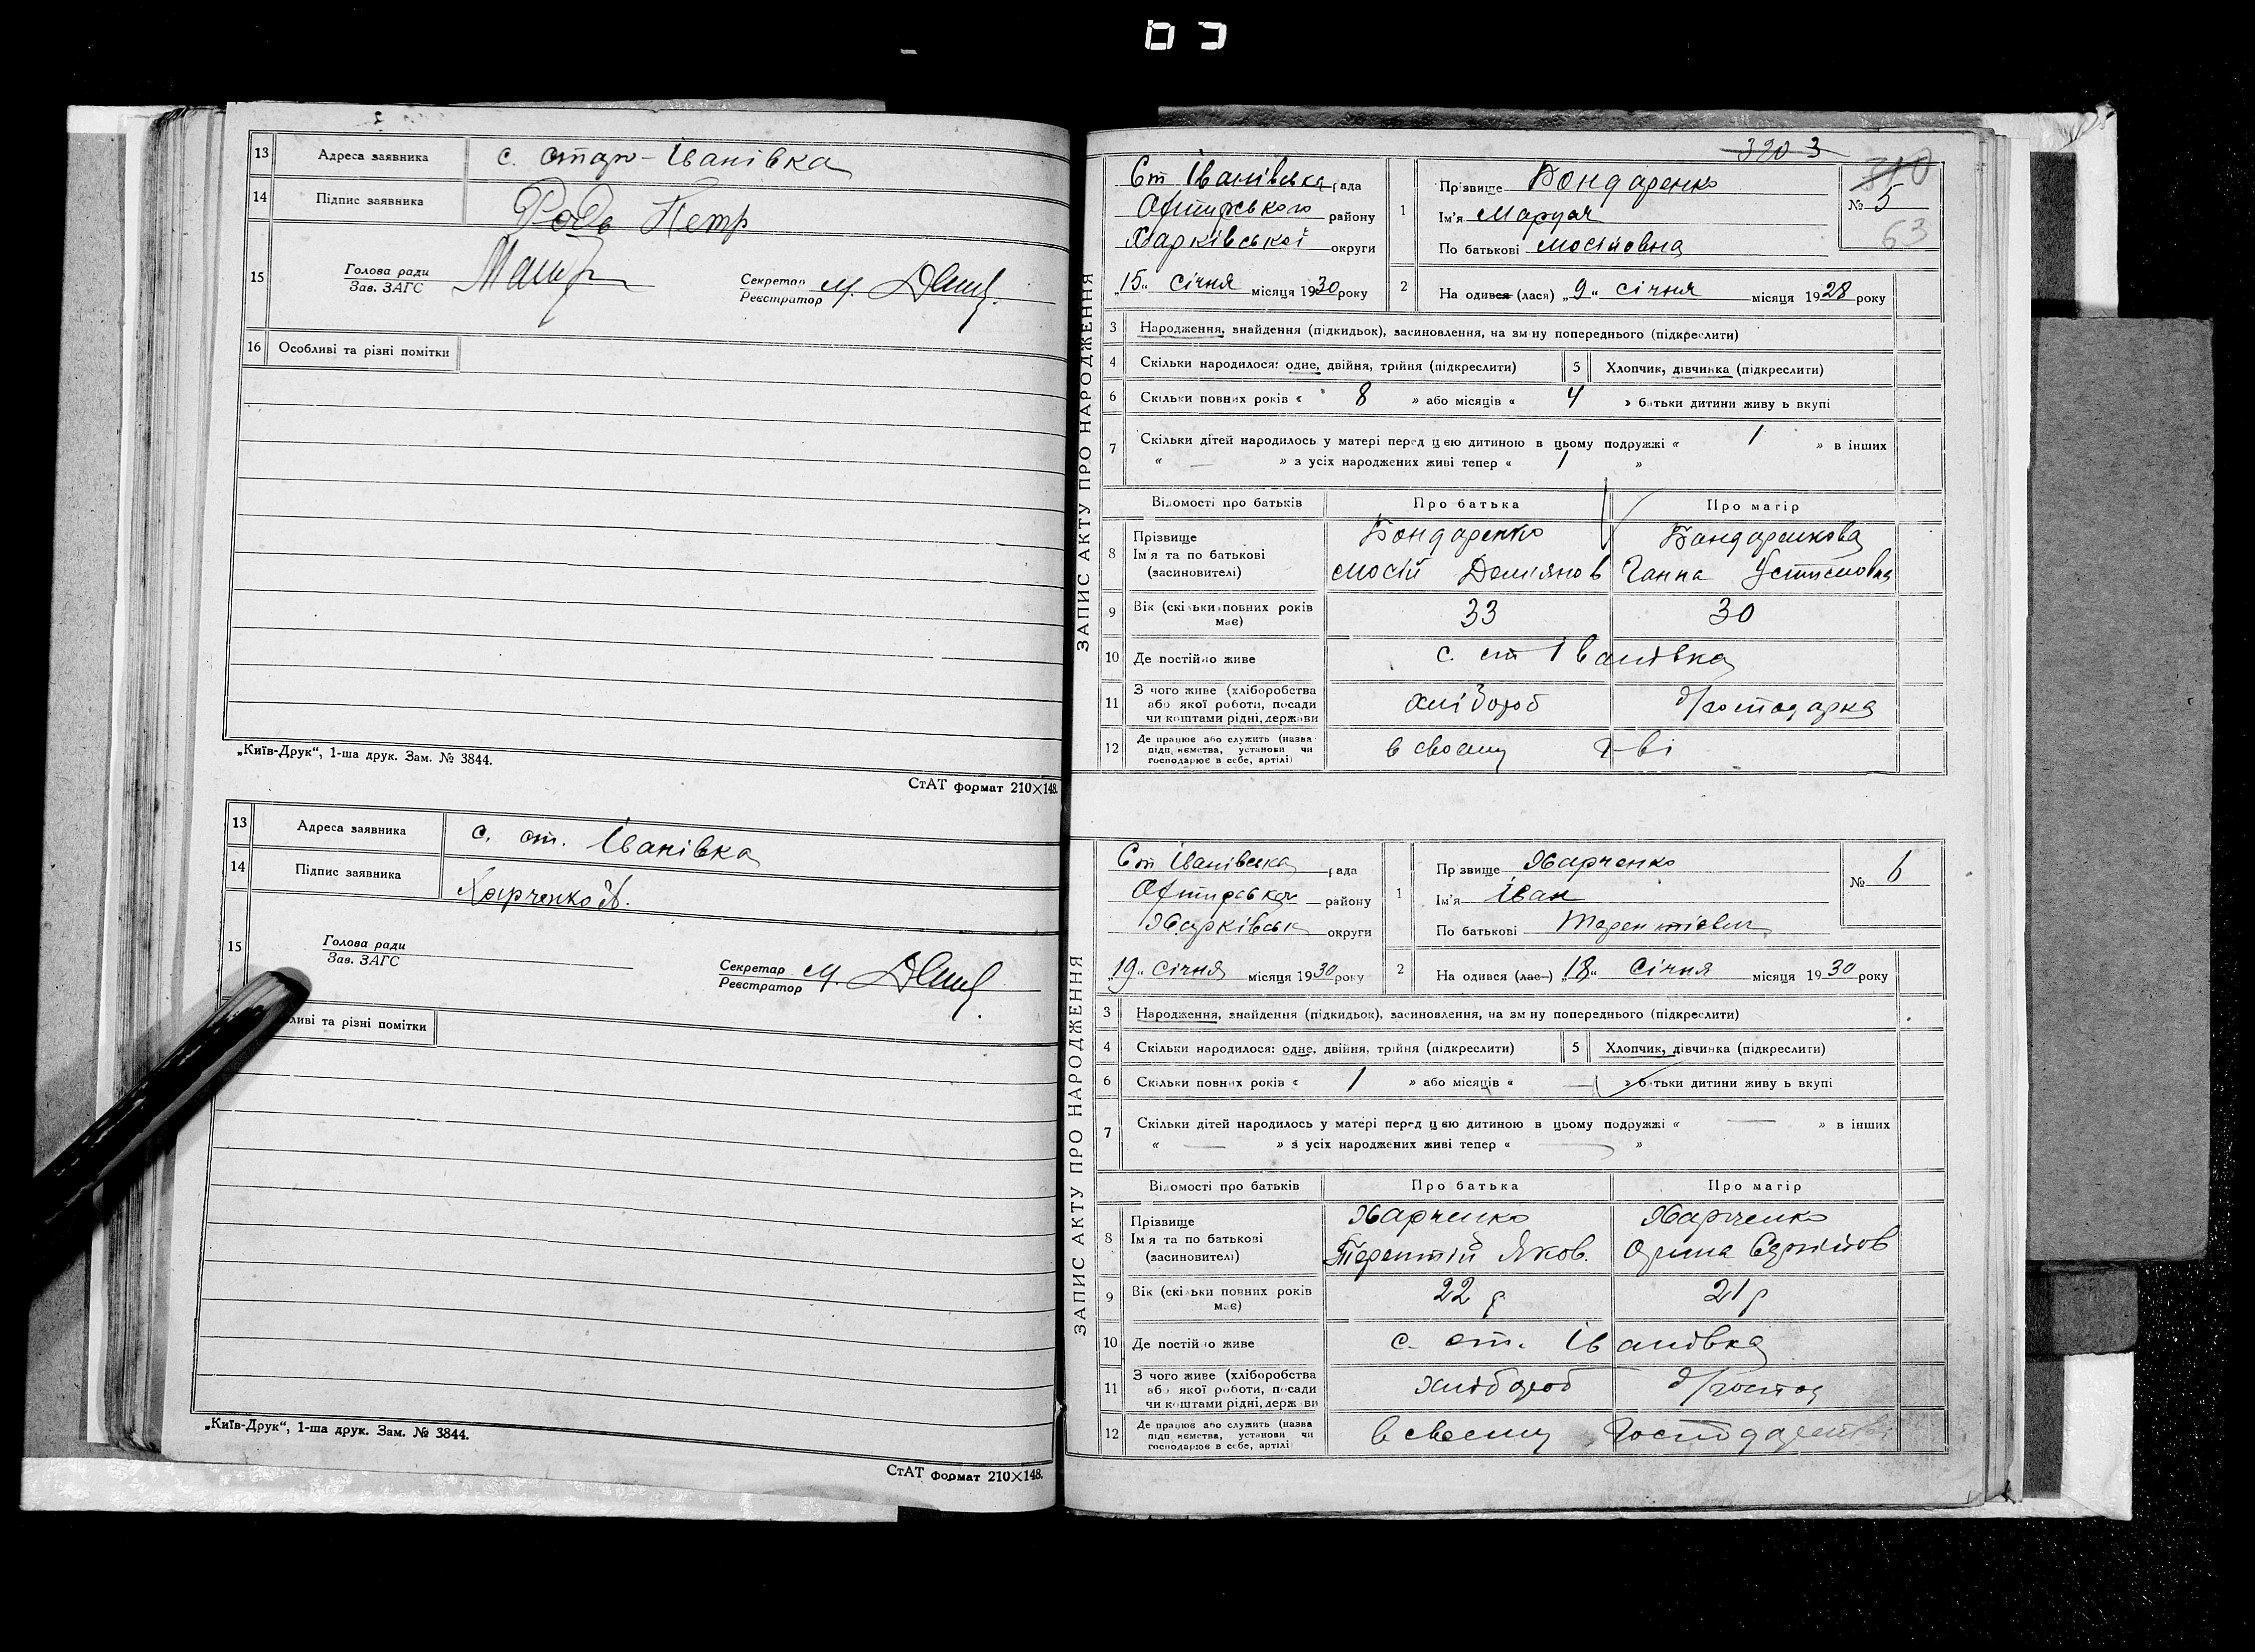 13 Адреса заявника с. стар-Іванівка
14 Підпис заявника Родь Петр
15 Голова ради
Зав. ЗАГС
Секретар М.
Реєстратор
16 Особливі та різні помітки
„Київ-Друк“, 1-ша друк. Зам. № 3844.
СтАТ формат 210×148.
13 Адреса заявника с. ст. Іванівка
14 Підпис заявника Харченко
15 Голова ради
Зав. ЗАГС
Секретар М.
Реєстратор
ливі та різні помітки
„Київ-Друк“, 1-ша друк. Зам. № 3844.
СтАТ формат 210×148.
320 3
ЗАПИС АКТУ ПРО НАРОДЖЕННЯ
Ст Іванівська рада
району
Харківської округи
„15“ січня місяця 1930 року
1 Прізвище Бондаренко
Ім'я Маруся
По батькові Мосійовна
№ 5
63
2 На одився (лася) „9“ січня місяця 1928 року
3 Народження, знайдення (підкидьок), засиновлення, на зм ну попереднього (підкреслити)
4 Скільки народилося: одне, двійня, трійня (підкреслити) 5 Хлопчик, дівчинка (підкреслити)
6 Скільки повних років « 8 » або місяців « 4 » батьки дитини живу ь вкупі
7 Скільки дітей народилось у матері перед цею дитиною в цьому подружжі « 1 » в інших
« — » з усіх народжених живі тепер « 1 »
Відомості про батьків Про батька Про матір
8 Прізвище Бондаренко Бондаренкова
Ім'я та по батькові
(засиновителі) Мосій Демянов Ганна Устимовна
9 Вік (скільки повних років має) 33 30
10 Де постійно живе с. ст Іванівка
11 З чого живе (хліборобства
або якої роботи, посади
чи коштами рідні, держави хлібороб д/господарка
12 Де працює або служить (назва
підприємства, установи чи
господарює в себе, артілі) в своєму г-ві
ЗАПИС АКТУ ПРО НАРОДЖЕННЯ
Ст Іванівська рада
району
Харківськ округи
„19“ січня місяця 1930 року
1 Прізвище Харченко
Ім'я Іван
По батькові Терентіевич
№ 6
2 На одився (лас-) „18“ Січня місяця 1930 року
3 Народження, знайдення (підкидьок), засиновлення, на зм ну попереднього (підкреслити)
4 Скільки народилося: одне, двійня, трійня (підкреслити) 5 Хлопчик, дівчинка (підкреслити)
6 Скільки повних років « 1 » або місяців « — » батьки дитини живу ь вкупі
7 Скільки дітей народилось у матері перед цею дитиною в цьому подружжі « — » в інших
« — » з усіх народжених живі тепер « — »
Відомості про батьків Про батька Про матір
8 Прізвище Харченко Харченко
Ім'я та по батькові
(засиновителі) Терентій Яков. Орина Сергійов
9 Вік (скільки повних років має) 22 р 21 р
10 Де постійно живе с. ст. Іванівка
11 З чого живе (хліборобства
або якої роботи, посади
чи коштами рідні, держави хлібороб д/господ
12 Де працює або служить (назва
підприємства, установи чи
господарює в себе, артілі) в своєму господарстві